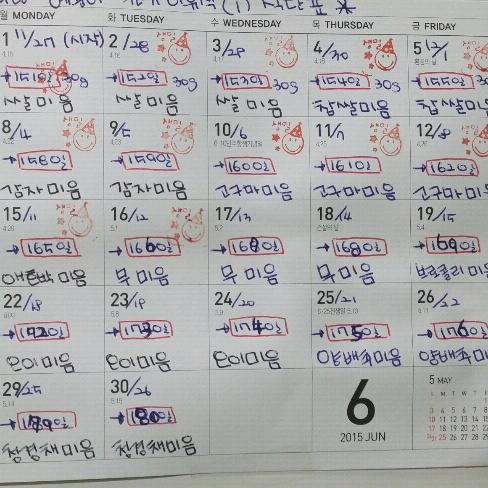 월 MONDAY 화 TUESDAY 수 WEDNESDAY 목 THURSDAY 금 FRIDAY
1 2 /28 3 /29 4 /30 5
4.15 4.16
→151일 30g →152일 30g →153일 30g →154일 30g →155일 30g
쌀미음 쌀미음 쌀미음 찹쌀미음 찹쌀미음
8 /4 9 /5 10 /6 11 /7 12 /8
4.22 4.23 6·10민주항쟁기념일 4.25 4.26
→158일 →159일 →160일 →161일 →162일
감자미음 감자미음 고구마미음 고구마미음 고구마미음
15 /11 16 /12 17 /13 18 /14 19 /15
4.29 5.1 5.2 5.4
→165일 →166일 →168일 →169일
애호박미음 무미음 무미음 무미음 브로콜리미음
22 /18 23 /19 24 /20 25 /21 26 /22
5.8 5.9 6·25전쟁일 5.10 5.11
→172일 →173일 →174일 →175일 →176일
오이미음 오이미음 오이미음 양배추미음 양배추미음
29 /25 30 /26
5.14 5.15
→180일
청경채미음 청경채미음
6
2015 JUN
5 MAY
S M T W T F
1
3 4 5 6 7 8
10 11 12 13 14 15
17 18 19 20 21 22
25 26 27 28 29